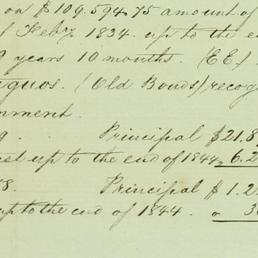 on $109.594.75 amount of
f Feby 1834. up to the e
9 years 10 months. (EEf.
quos. (Old Bonds) recog
nment.
9. Principal $21.8
et up to the end of 1844. 6.2
8. Principal $1.2
up to the end of 1844. " 3